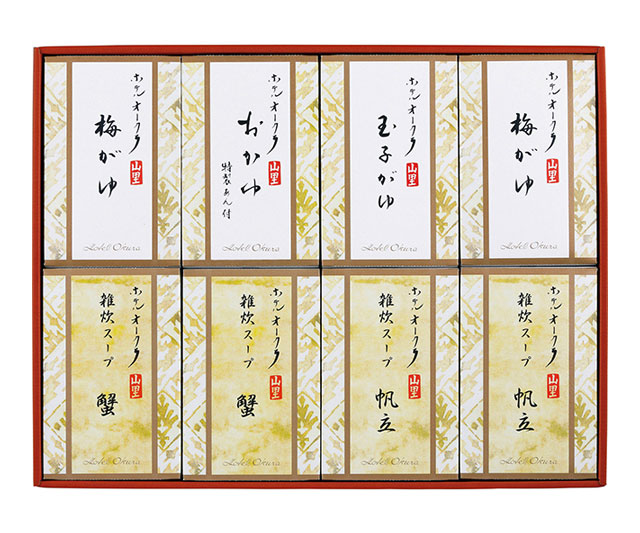 ホテルオークラ
山里
梅がゆ
Hotel Okura
ホテルオークラ
山里
おかゆ
特製あん付
Hotel Okura
ホテルオークラ
山里
玉子がゆ
Hotel Okura
ホテルオークラ
山里
梅がゆ
Hotel Okura
ホテルオークラ
山里
雑炊スープ
蟹
Hotel Okura
ホテルオークラ
山里
雑炊スープ
蟹
Hotel Okura
ホテルオークラ
山里
雑炊スープ
帆立
Hotel Okura
ホテルオークラ
山里
雑炊スープ
帆立
Hotel Okura